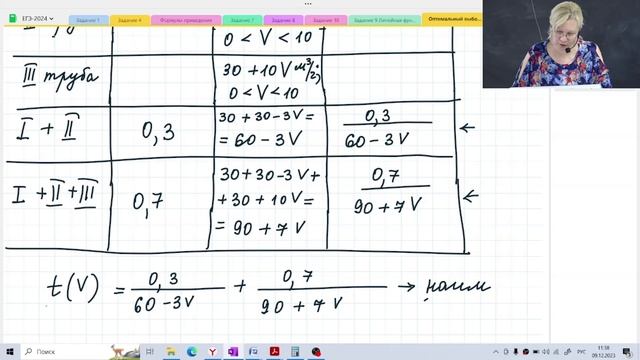 ЕГЭ-2024
Задание 1
Задание 4
Формулы приведения
Задание 7
Задание 8
Задание 10
Задание 9 Линейные фун...
Оптимальный выбо...
0 < V < 10
III труба
30 + 10V (м³/г);
0 < V < 10
I + II
0,3
30 + 30 - 3V =
= 60 - 3V
0,3
60 - 3V
←
I + II + III
0,7
30 + 30 - 3V +
+ 30 + 10V =
= 90 + 7V
0,7
90 + 7V
←
t(V) = 0,3 / 60 - 3V + 0,7 / 90 + 7V → наим
Поиск
РУС
11:38
09.12.2023